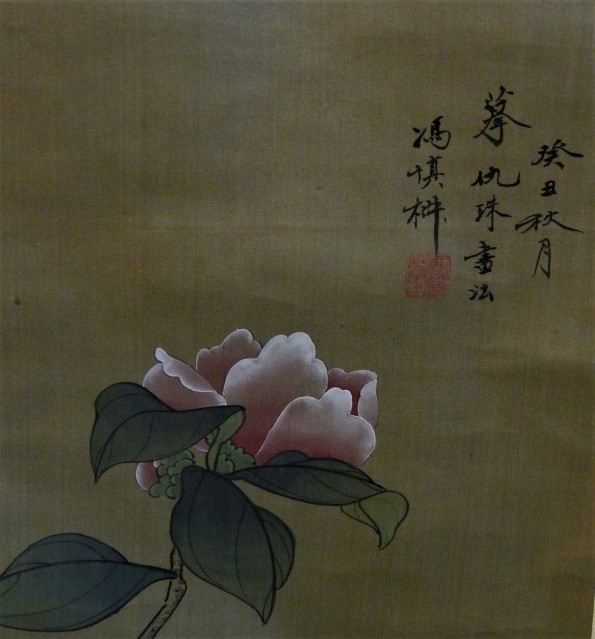 癸丑秋月
摹仇珠畫法
馮慎